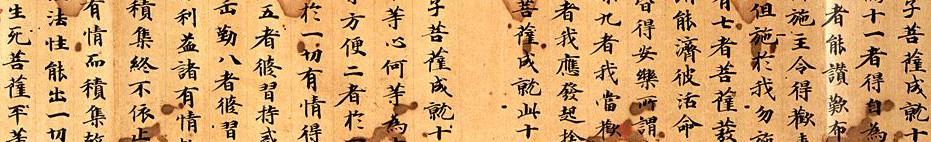 子菩薩成就十
為十一者得自為
者能讚歎布
施主令得歡
但施於我勿施
有七者菩薩發
能濟彼活命
得安樂所謂
九者我當歡
者我應發起捨
菩薩成就此十
子菩薩成就十
等心何等為
方便二者於
於一切有情得
五者修習持戒
勤八者修習
利益諸有情
積集終不依止
有情而積集
法性能出一切
生死菩薩平等